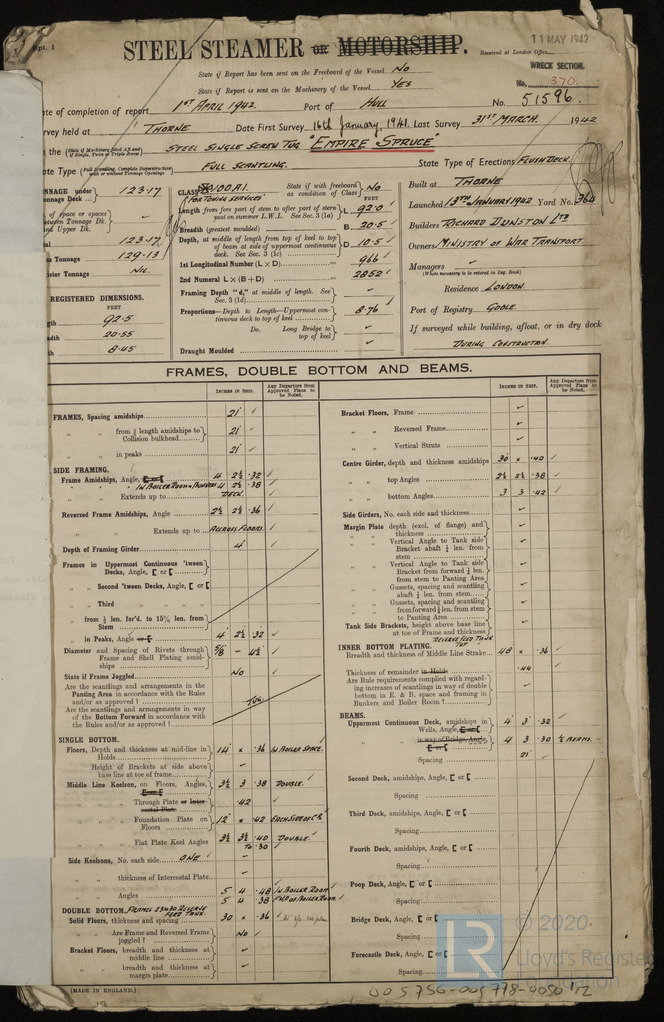 Rpt. 1
11 MAY 1942
STEEL STEAMER or MOTORSHIP.
Received at London Office
WRECK SECTION.
State if Report has been sent on the Freeboard of the Vessel No
State if Report is sent on the Machinery of the Vessel Yes
No. 370.
te of completion of report 1ST APRIL 1942. Port of HULL No. 51596.
vey held at THORNE Date First Survey 16th January, 1941. Last Survey 31ST MARCH. 1942
the (State if Machinery fitted Aft and if Single, Twin or Triple Screw) STEEL SINGLE SCREW TUG "EMPIRE SPRUCE"
ate Type FULL SCANTLING. State Type of Erections FLUSH DECK.
TONNAGE under Tonnage Deck 123.17
of space or spaces between Tonnage Dk. and Upper Dk.
al 123.17
ss Tonnage 129.13
ister Tonnage NIL.
REGISTERED DIMENSIONS.
FEET
gth 92.5
adth 20.55
th 8.45
CLASS 100A1. State if with freeboard as condition of Class No
FOR TOWING SERVICES
FEET
Length from fore part of stem to after part of stern post on summer L.W.L. See Sec. 3 (1a) L 92.0
Breadth (greatest moulded) B 20.5
Depth, at middle of length from top of keel to top of beam at side of uppermost continuous deck. See Sec. 3 (1c) D 10.5
1st Longitudinal Number (L × D) 966
2nd Numeral L × (B + D) 2852
Framing Depth "d," at middle of length. See Sec. 3 (1d)
Proportions—Depth to Length—Uppermost continuous deck to top of keel 8.76
Do. Long Bridge to top of keel
Draught Moulded
Built at THORNE
Launched 13TH JANUARY 1942 Yard No. 364
Builders RICHARD DUNSTON LTD
Owners MINISTRY OF WAR TRANSPORT
Managers
(Where necessary to be entered in Reg. Book)
Residence LONDON.
Port of Registry GOOLE.
If surveyed while building, afloat, or in dry dock
DURING CONSTRUCTION.
FRAMES, DOUBLE BOTTOM AND BEAMS.
INCHES IN SHIP. Any Departure from Approved Plans to be Noted.
FRAMES, Spacing amidships 21
" " from 3/5 length amidships to Collision bulkhead 21
" " in peaks 21
SIDE FRAMING.
Frame Amidships, Angle, 4 2½ .32
" " IN BOILER ROOM & BUNKERS 4 2½ .38
" " Extends up to DECK.
Reversed Frame Amidships, Angle 2½ 2½ .36
" " Extends up to ACCROSS FLOORS.
Depth of Framing Girder 4
Frames in Uppermost Continuous 'tween Decks, Angle, [ or [
" Second 'tween Decks, Angle, [ or [
" Third " " "
" from ½ len. for'd. to 15% len. from Stem
" in Peaks, Angle or [ 4 2½ .32
Diameter and Spacing of Rivets through Frame and Shell Plating amidships 5/8 - 4½
State if Frame Joggled No
Are the scantlings and arrangements in the Panting Area in accordance with the Rules and/or as approved?
Are the scantlings and arrangements in way of the Bottom Forward in accordance with the Rules and/or as approved? TUG.
SINGLE BOTTOM.
Floors, Depth and thickness at mid-line in Holds 14 × .36 IN BOILER SPACE.
Height of Brackets at side above base line at toe of frame
Middle Line Keelson, on Floors, Angles, 3½ 3 .38 DOUBLE.
" " Through Plate or Intercostal Plate .42
" " Foundation Plate on Floors 12 × .42 EACH SIDE OF CL
" " Flat Plate Keel Angles 3½ 3½ .40 TO .30 DOUBLE.
Side Keelsons, No. each side ONE
" " thickness of Intercostal Plate
" " Angles 5 4 .48 IN BOILER ROOM
5 4 .38 FWD OF BOILER ROOM
DOUBLE BOTTOM. FRAMES 25 TO 30 RESERVE FEED TANK.
Solid Floors, thickness and spacing 30 × .36
" " Are Frame and Reversed Frame joggled? No
Bracket Floors, breadth and thickness at middle line
" " breadth and thickness at margin plate
INCHES IN SHIP. Any Departure from Approved Plans to be Noted.
Bracket Floors, Frame
" " Reversed Frame
" " Vertical Struts
Centre Girder, depth and thickness amidships 30 × .40
" " top Angles 2½ 2½ .38
" " bottom Angles 3 3 .42
Side Girders, No. each side and thickness
Margin Plate depth (excl. of flange) and thickness
" " Vertical Angle to Tank side Bracket abaft ¼ len. from stem
" " Vertical Angle to Tank side Bracket from forward ¼ len. from stem to Panting Area
" " Gussets, spacing and scantling abaft ¼ len. from stem
" " Gussets, spacing and scantling from forward ¼ len. from stem to Panting Area
Tank Side Brackets, height above base line at toe of Frame and thickness
RESERVE FEED TANK TOP
INNER BOTTOM PLATING.
Breadth and thickness of Middle Line Strake 48 × .36
Thickness of remainder in Holds .44
Are Rule requirements complied with regarding increases of scantlings in way of double bottom in E. & B. space and framing in Bunkers and Boiler Room?
BEAMS.
Uppermost Continuous Deck, amidships in Wells, Angle, 4 3 .32
" " in way of Bridge, Angle, 4 3 .30 ½ BEAMS.
Spacing 21
Second Deck, amidships, Angle, [ or [
Spacing
Third Deck, amidships, Angle, [ or [
Spacing
Fourth Deck, amidships, Angle, [ or [
Spacing
Poop Deck, Angle, [ or [
Spacing
Bridge Deck, Angle, [ or [
Spacing
Forecastle Deck, Angle, [ or [
Spacing
(MADE IN ENGLAND.)
LR © 2020
Lloyd's Register
005756-005778-0050 1/2